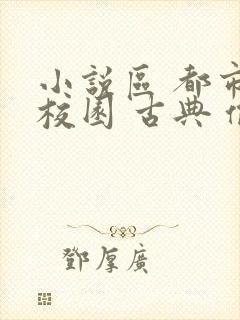 小説區 都市
校園 古典
鄧厚廣